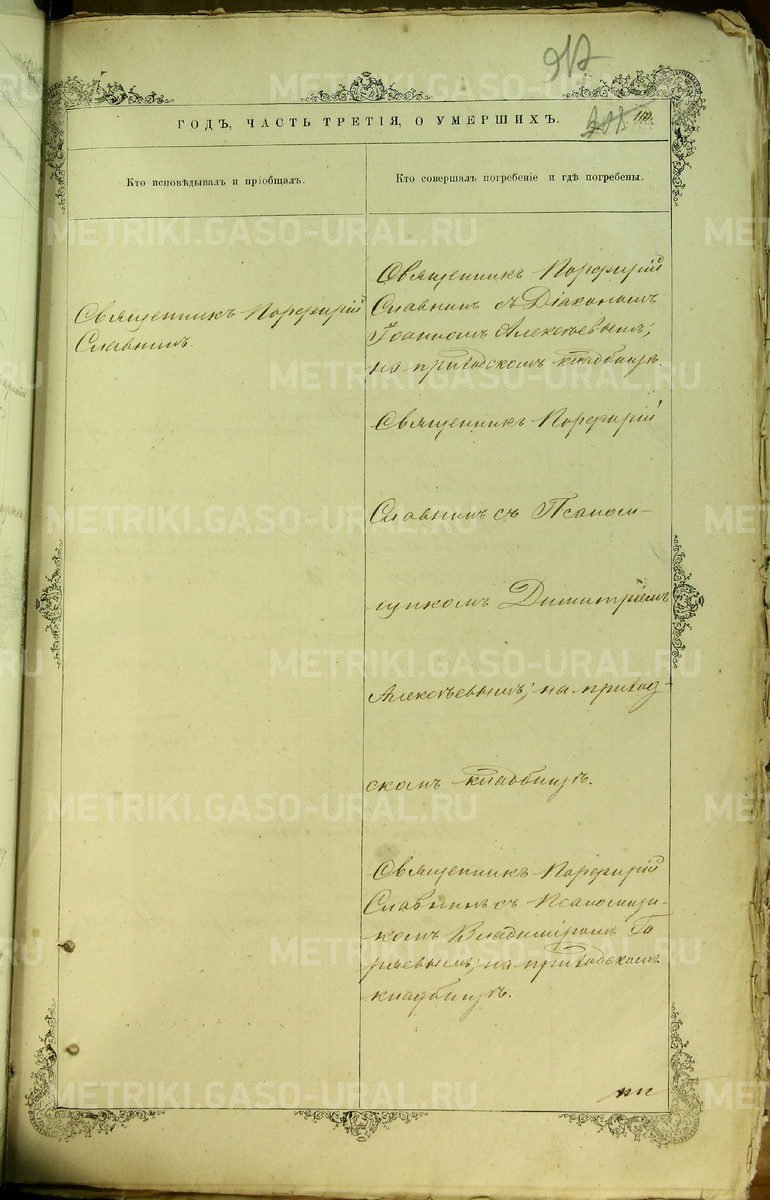 917
160.
ГОДЪ, ЧАСТЬ ТРЕТІЯ, О УМЕРШИХЪ.
Кто исповѣдывалъ и пріобщалъ.
Кто совершалъ погребеніе и гдѣ погребены.
Священникъ Порфирій
Славнинъ.
Священникъ Порфирій
Славнинъ съ Діакономъ
Іоанномъ Алексѣевымъ;
на приходскомъ кладбищѣ.
Священникъ Порфирій
Славнинъ съ Псалом-
щикомъ Димитріемъ
Алексѣевымъ; на приход-
скомъ кладбищѣ.
Священникъ Порфирій
Славнинъ съ Псаломщи-
комъ Владиміромъ
на приходскомъ
кладбищѣ.
METRIKI.GASO-URAL.RU